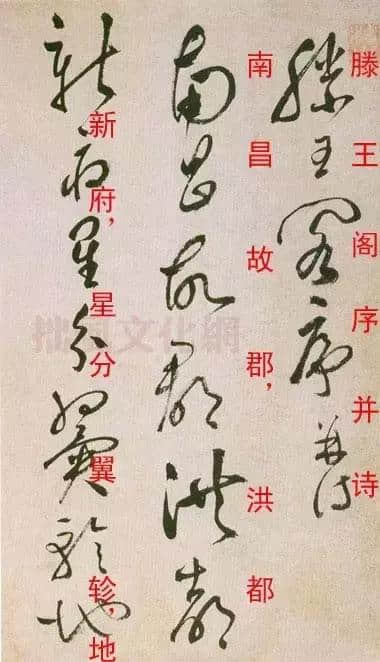 滕王阁序并诗
滕王閣序并詩
南昌故郡，洪都
南昌故郡洪都
新府，星分翼轸，地
新府星分翼軫地
拙风文化網